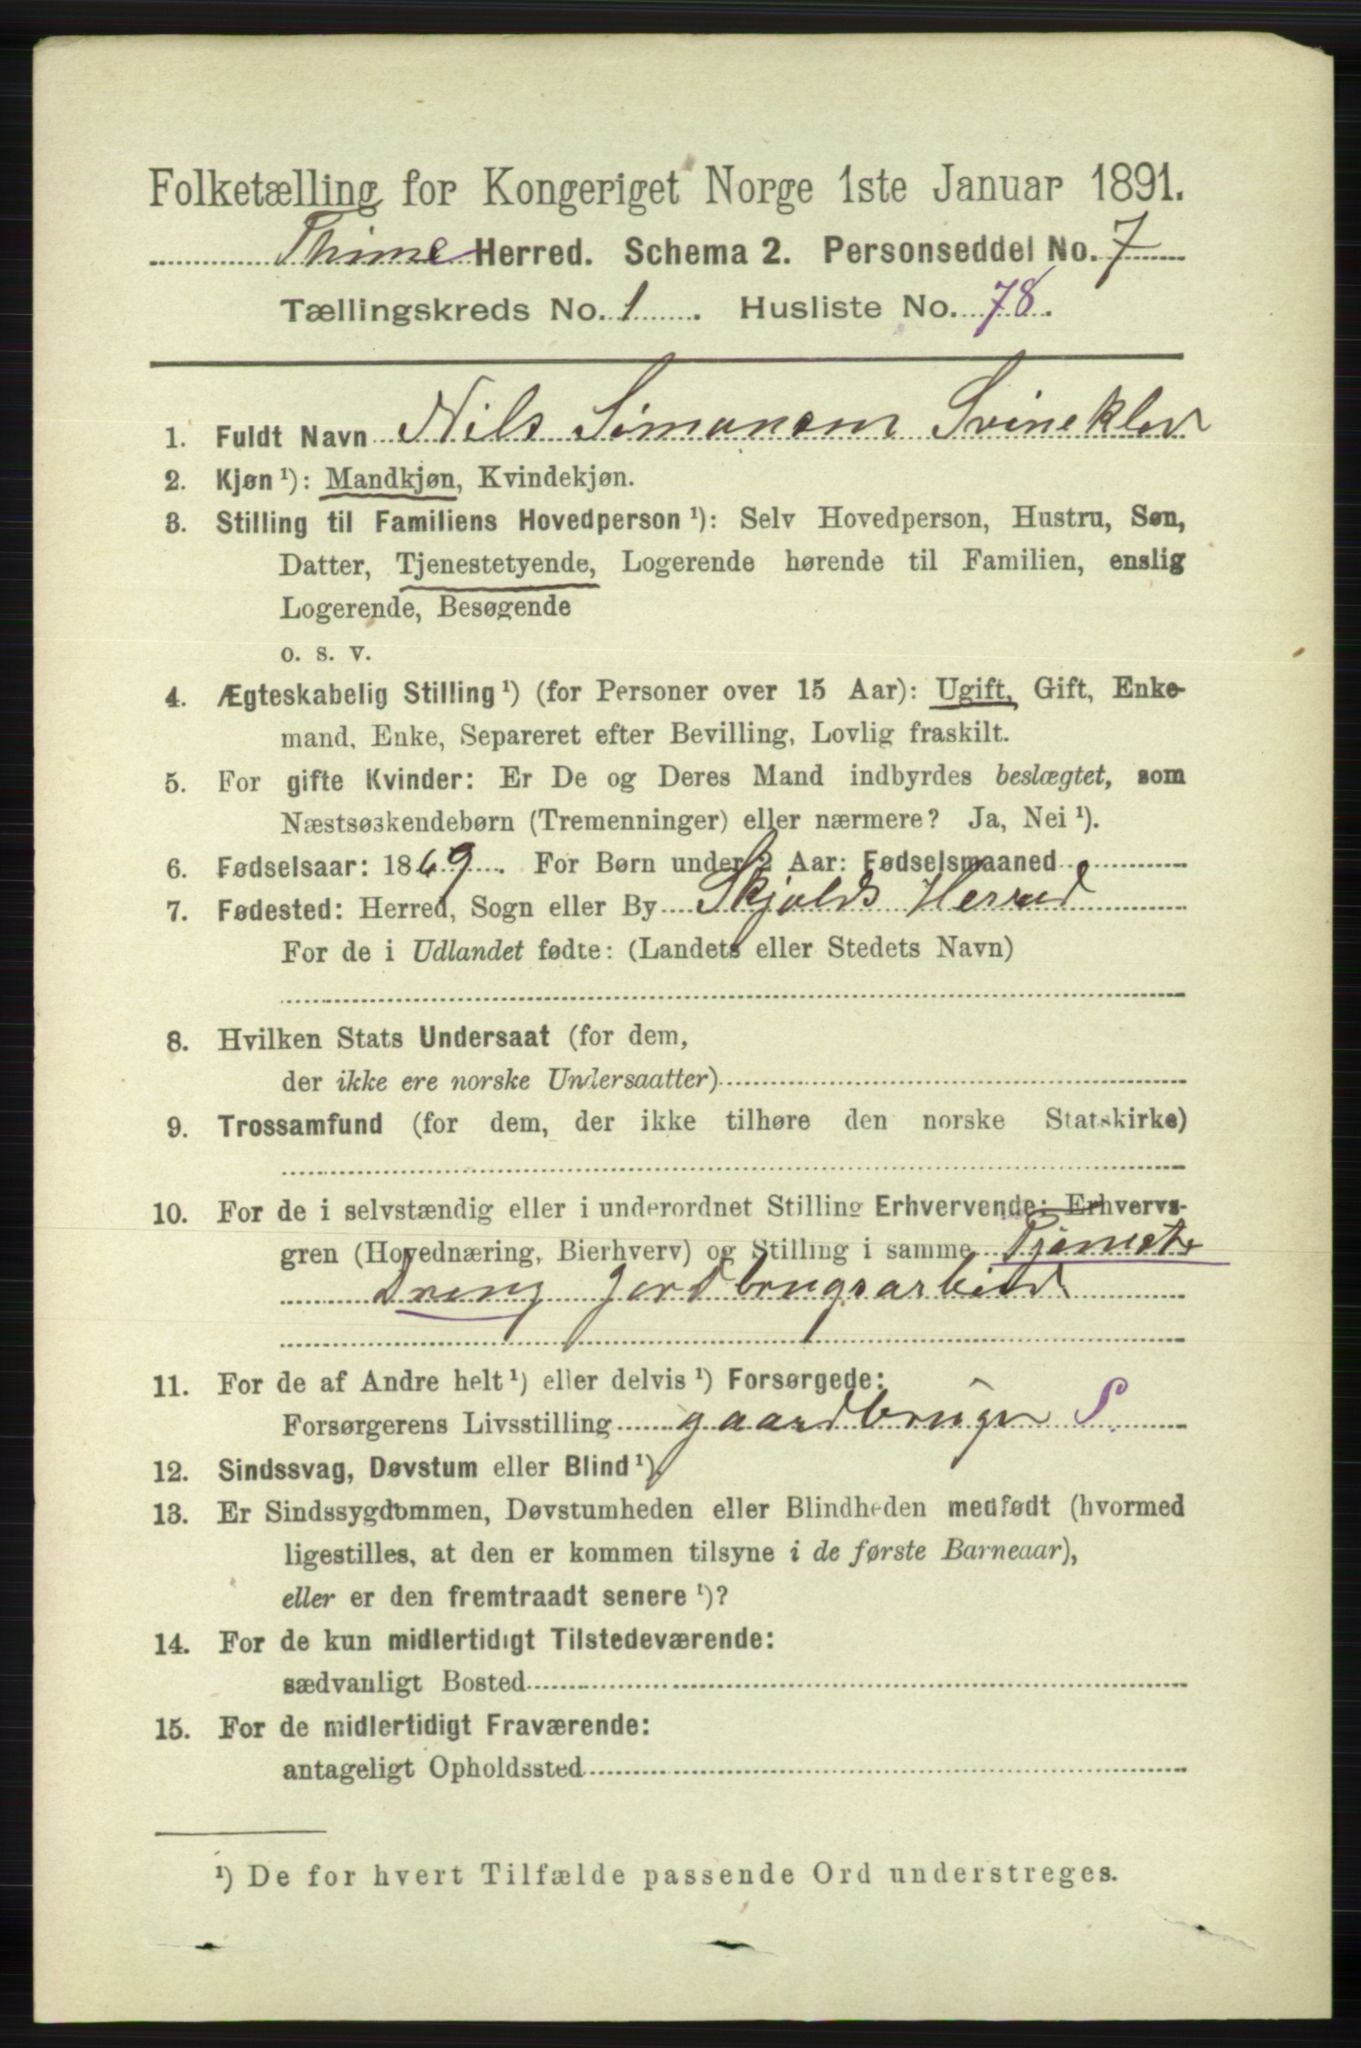 Folketælling for Kongeriget Norge 1ste Januar 1891.
Thime Herred. Schema 2. Personseddel No. 7
Tællingskreds No. 1. Husliste No. 78.
1. Fuldt Navn Nils Simonsen Svineklev
2. Kjøn ¹): Mandkjøn, Kvindekjøn.
3. Stilling til Familiens Hovedperson ¹): Selv Hovedperson, Hustru, Søn,
Datter, Tjenestetyende, Logerende hørende til Familien, enslig
Logerende, Besøgende
o. s. v.
4. Ægteskabelig Stilling ¹) (for Personer over 15 Aar): Ugift, Gift, Enke-
mand, Enke, Separeret efter Bevilling, Lovlig fraskilt.
5. For gifte Kvinder: Er De og Deres Mand indbyrdes beslægtet, som
Næstsøskendebørn (Tremenninger) eller nærmere? Ja, Nei ¹).
6. Fødselsaar: 1869. For Børn under 2 Aar: Fødselsmaaned
7. Fødested: Herred, Sogn eller By Skjolds Herred
For de i Udlandet fødte: (Landets eller Stedets Navn)
8. Hvilken Stats Undersaat (for dem,
der ikke ere norske Undersaatter)
9. Trossamfund (for dem, der ikke tilhøre den norske Statskirke)
10. For de i selvstændig eller i underordnet Stilling Erhvervende: Erhvervs-
gren (Hovednæring, Bierhverv) og Stilling i samme Tjeneste
Dreng Jordbrugsarbeid
11. For de af Andre helt ¹) eller delvis ¹) Forsørgede:
Forsørgerens Livsstilling gaardbruger S.
12. Sindssvag, Døvstum eller Blind ¹)
13. Er Sindssygdommen, Døvstumheden eller Blindheden medfødt (hvormed
ligestilles, at den er kommen tilsyne i de første Barneaar),
eller er den fremtraadt senere ¹)?
14. For de kun midlertidigt Tilstedeværende:
sædvanligt Bosted
15. For de midlertidigt Fraværende:
antageligt Opholdssted
¹) De for hvert Tilfælde passende Ord understreges.